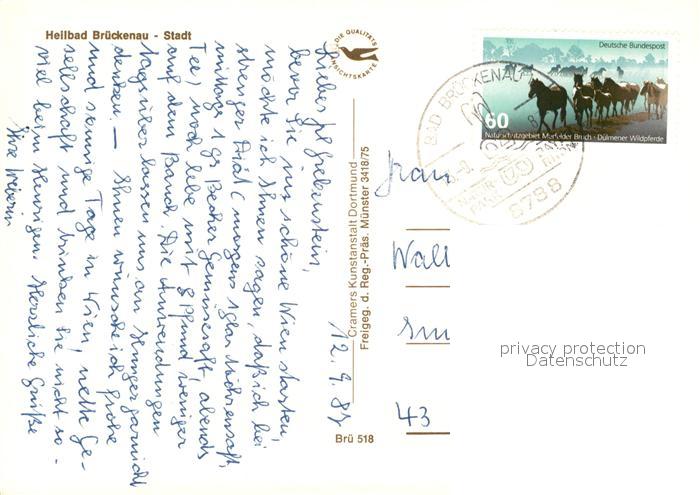 Heilbad Brückenau - Stadt
DIE QUALITÄTS
ANSICHTSKARTE
Deutsche Bundespost
60
Naturschutzgebiet Merfelder Bruch · Dülmener Wildpferde
BAD BRÜCKENAU
NATUR-
PARK
8788
12. 9. 87
Liebes
bevor Sie ins schöne Wien starten,
möchte ich Ihnen sagen, daß ich bei
strenger Diät (morgens 1 Glas Möhrensaft,
mittags 1 gr Becher Gemüsesaft, abends
Tee) noch lebe mit 8 Pfund weniger
auf dem Bauch. Die Anwendungen
tagsüber lassen uns an Hunger gar nicht
denken. — Ihnen wünsche ich frohe
und sonnige Tage in Wien, nette Ge-
sellschaft und trinken Sie nicht so-
viel beim Heurigen. Herzliche Grüße
Ihre
Cramers Kunstanstalt Dortmund
Freigeg. d. Reg.-Präs. Münster 3418/75
Brü 518
Frau
Wall
43
privacy protection
Datenschutz